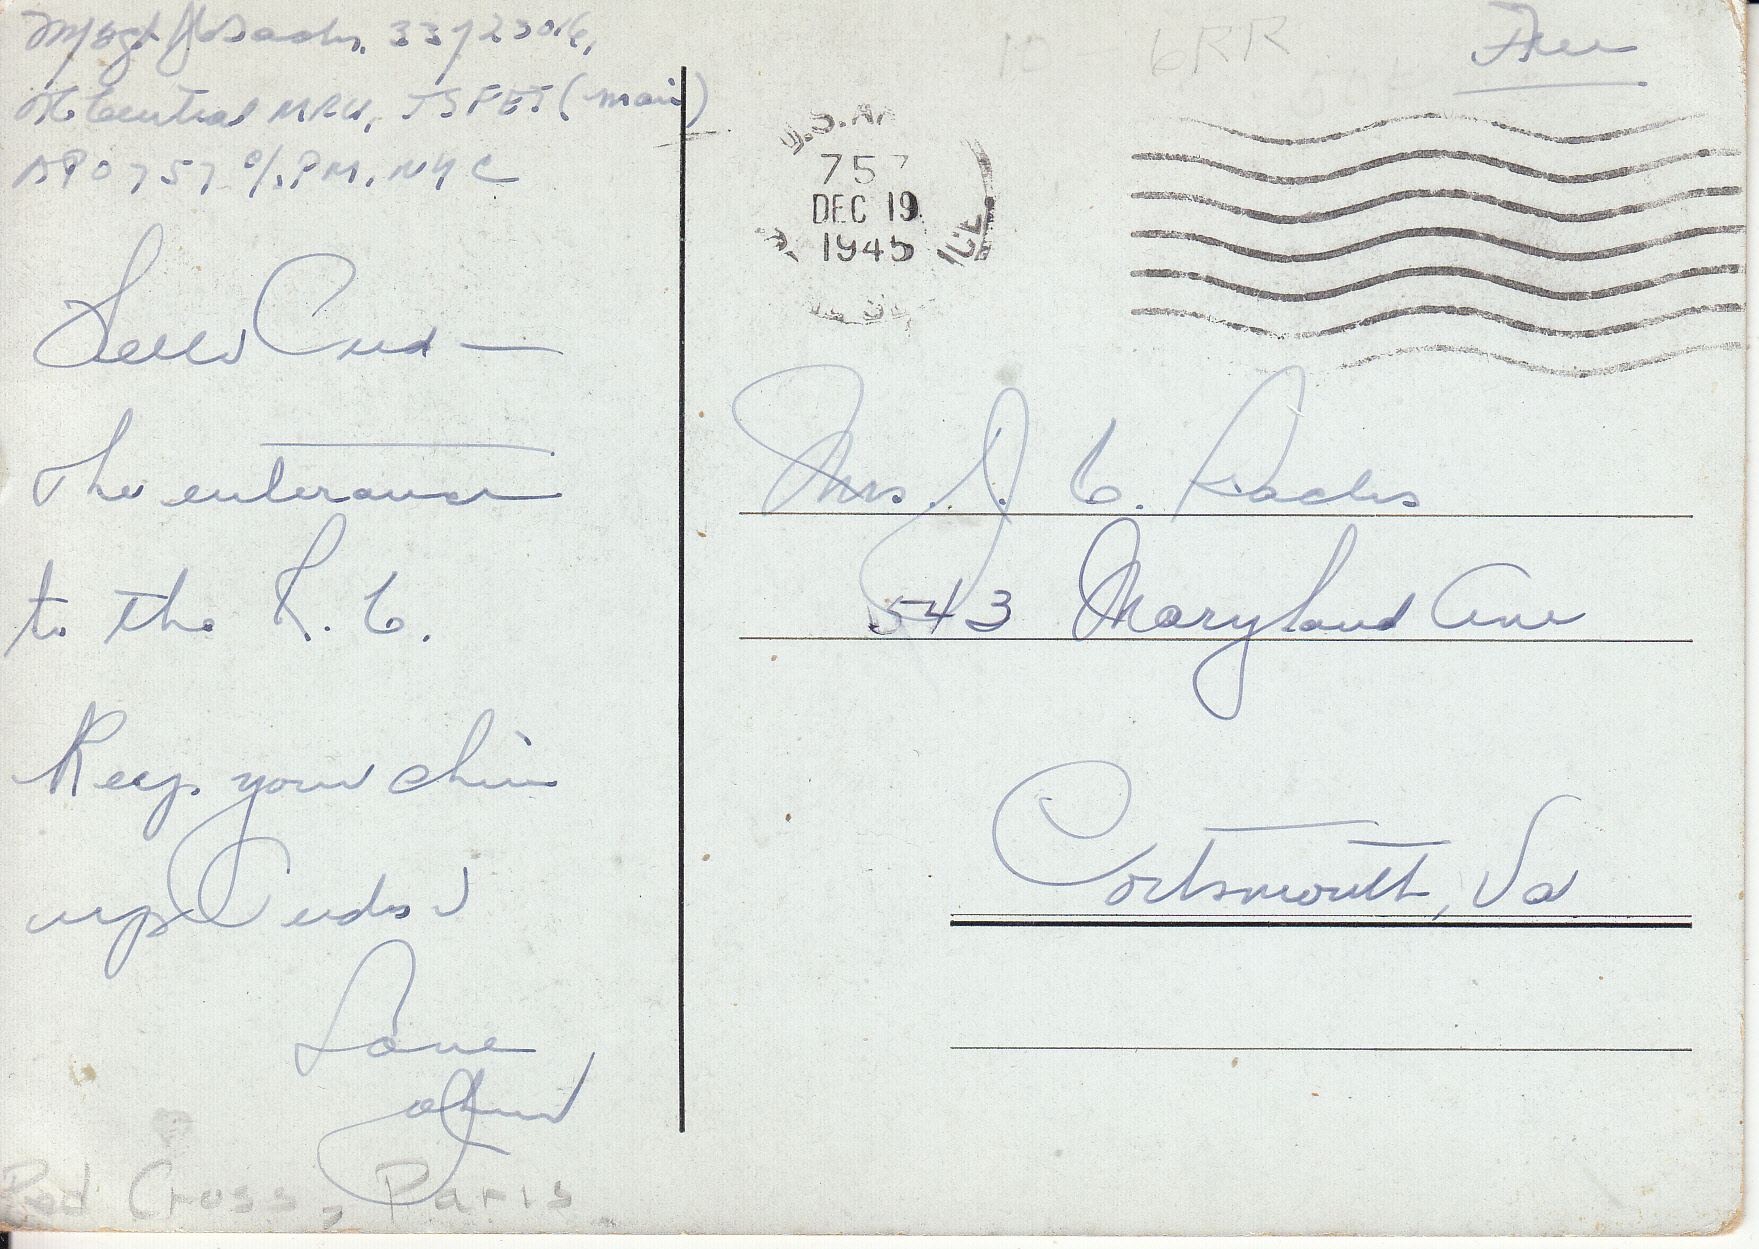 M/Sgt J C Dachs, 33723016,
Hq Central MRU, TSFET (main)
APO 757 c/o P.M. NYC
Hello Cud —
The enterance
to the R. C.
Keep your chin
up Cuds
Love
John
Red Cross, Paris
6RR
Free
U.S. AR
757
DEC 19
1945
Mrs. J. C. Dachs
543 Maryland Ave
Portsmouth, Va